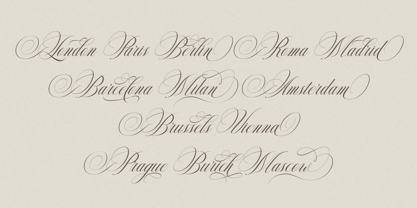 London Paris Berlin Roma Madrid
Barcelona Milan Amsterdam
Brussels Vienna
Prague Zurich Moscow